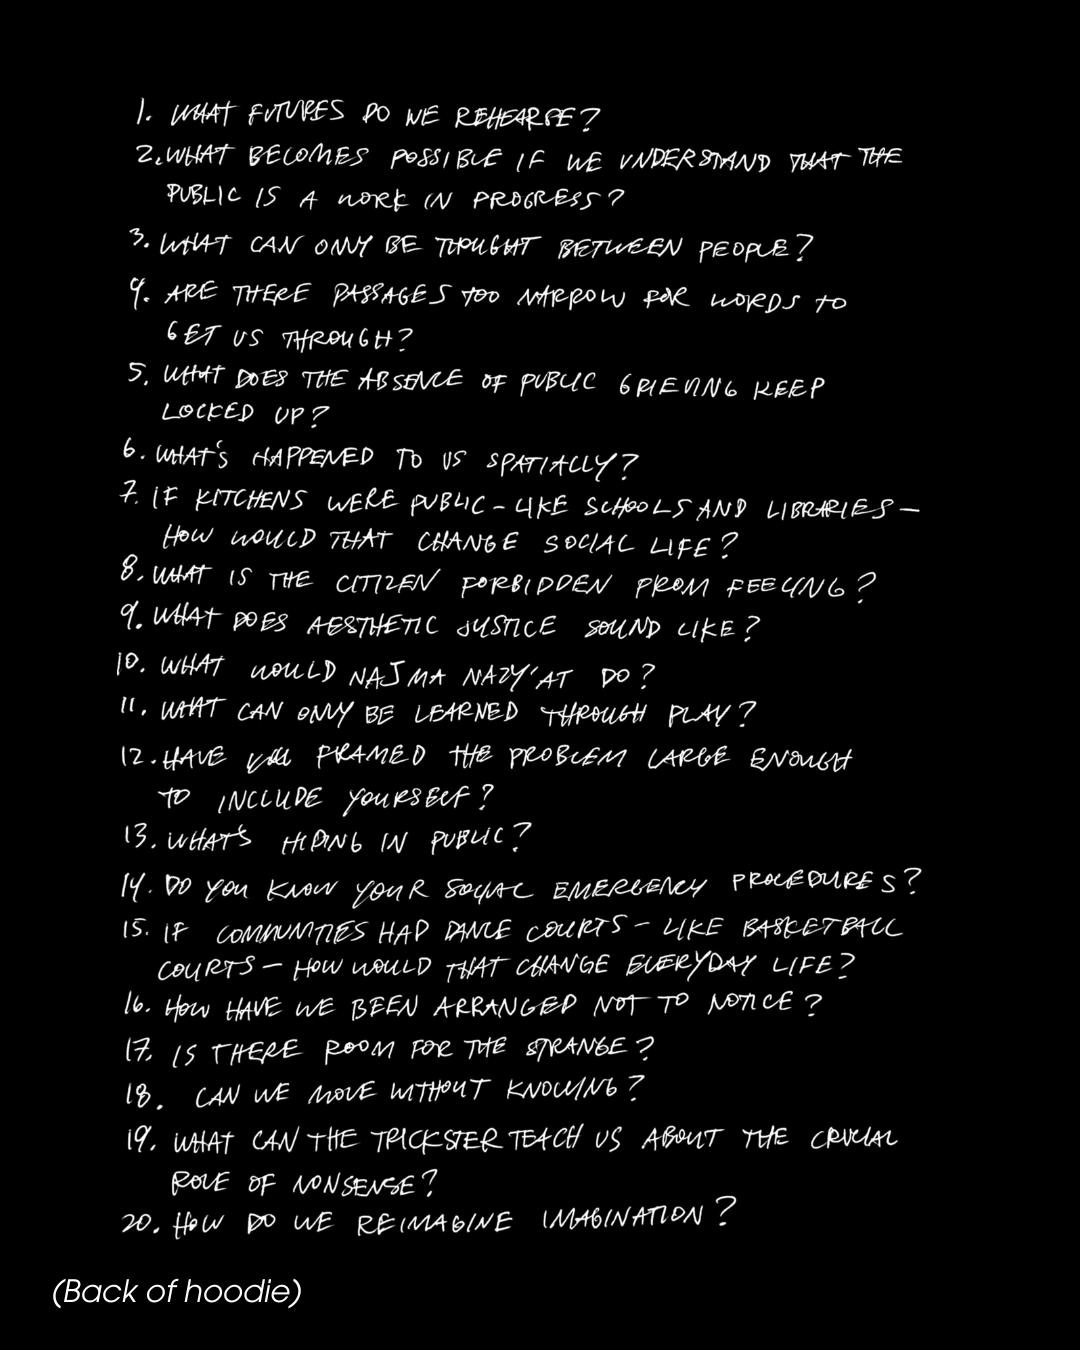 1. WHAT FUTURES DO WE REHEARSE?
2. WHAT BECOMES POSSIBLE IF WE UNDERSTAND THAT THE
PUBLIC IS A WORK IN PROGRESS?
3. WHAT CAN ONLY BE THOUGHT BETWEEN PEOPLE?
4. ARE THERE PASSAGES TOO NARROW FOR WORDS TO
GET US THROUGH?
5. WHAT DOES THE ABSENCE OF PUBLIC GRIEVING KEEP
LOCKED UP?
6. WHAT'S HAPPENED TO US SPATIALLY?
7. IF KITCHENS WERE PUBLIC – LIKE SCHOOLS AND LIBRARIES –
HOW WOULD THAT CHANGE SOCIAL LIFE?
8. WHAT IS THE CITIZEN FORBIDDEN FROM FEELING?
9. WHAT DOES AESTHETIC JUSTICE SOUND LIKE?
10. WHAT WOULD NAJMA NAZY'AT DO?
11. WHAT CAN ONLY BE LEARNED THROUGH PLAY?
12. HAVE YOU FRAMED THE PROBLEM LARGE ENOUGH
TO INCLUDE YOURSELF?
13. WHAT'S HIDING IN PUBLIC?
14. DO YOU KNOW YOUR SOCIAL EMERGENCY PROCEDURES?
15. IF COMMUNITIES HAD DANCE COURTS – LIKE BASKETBALL
COURTS – HOW WOULD THAT CHANGE EVERYDAY LIFE?
16. HOW HAVE WE BEEN ARRANGED NOT TO NOTICE?
17. IS THERE ROOM FOR THE STRANGE?
18. CAN WE MOVE WITHOUT KNOWING?
19. WHAT CAN THE TRICKSTER TEACH US ABOUT THE CRUCIAL
ROLE OF NONSENSE?
20. HOW DO WE REIMAGINE IMAGINATION?
(Back of hoodie)